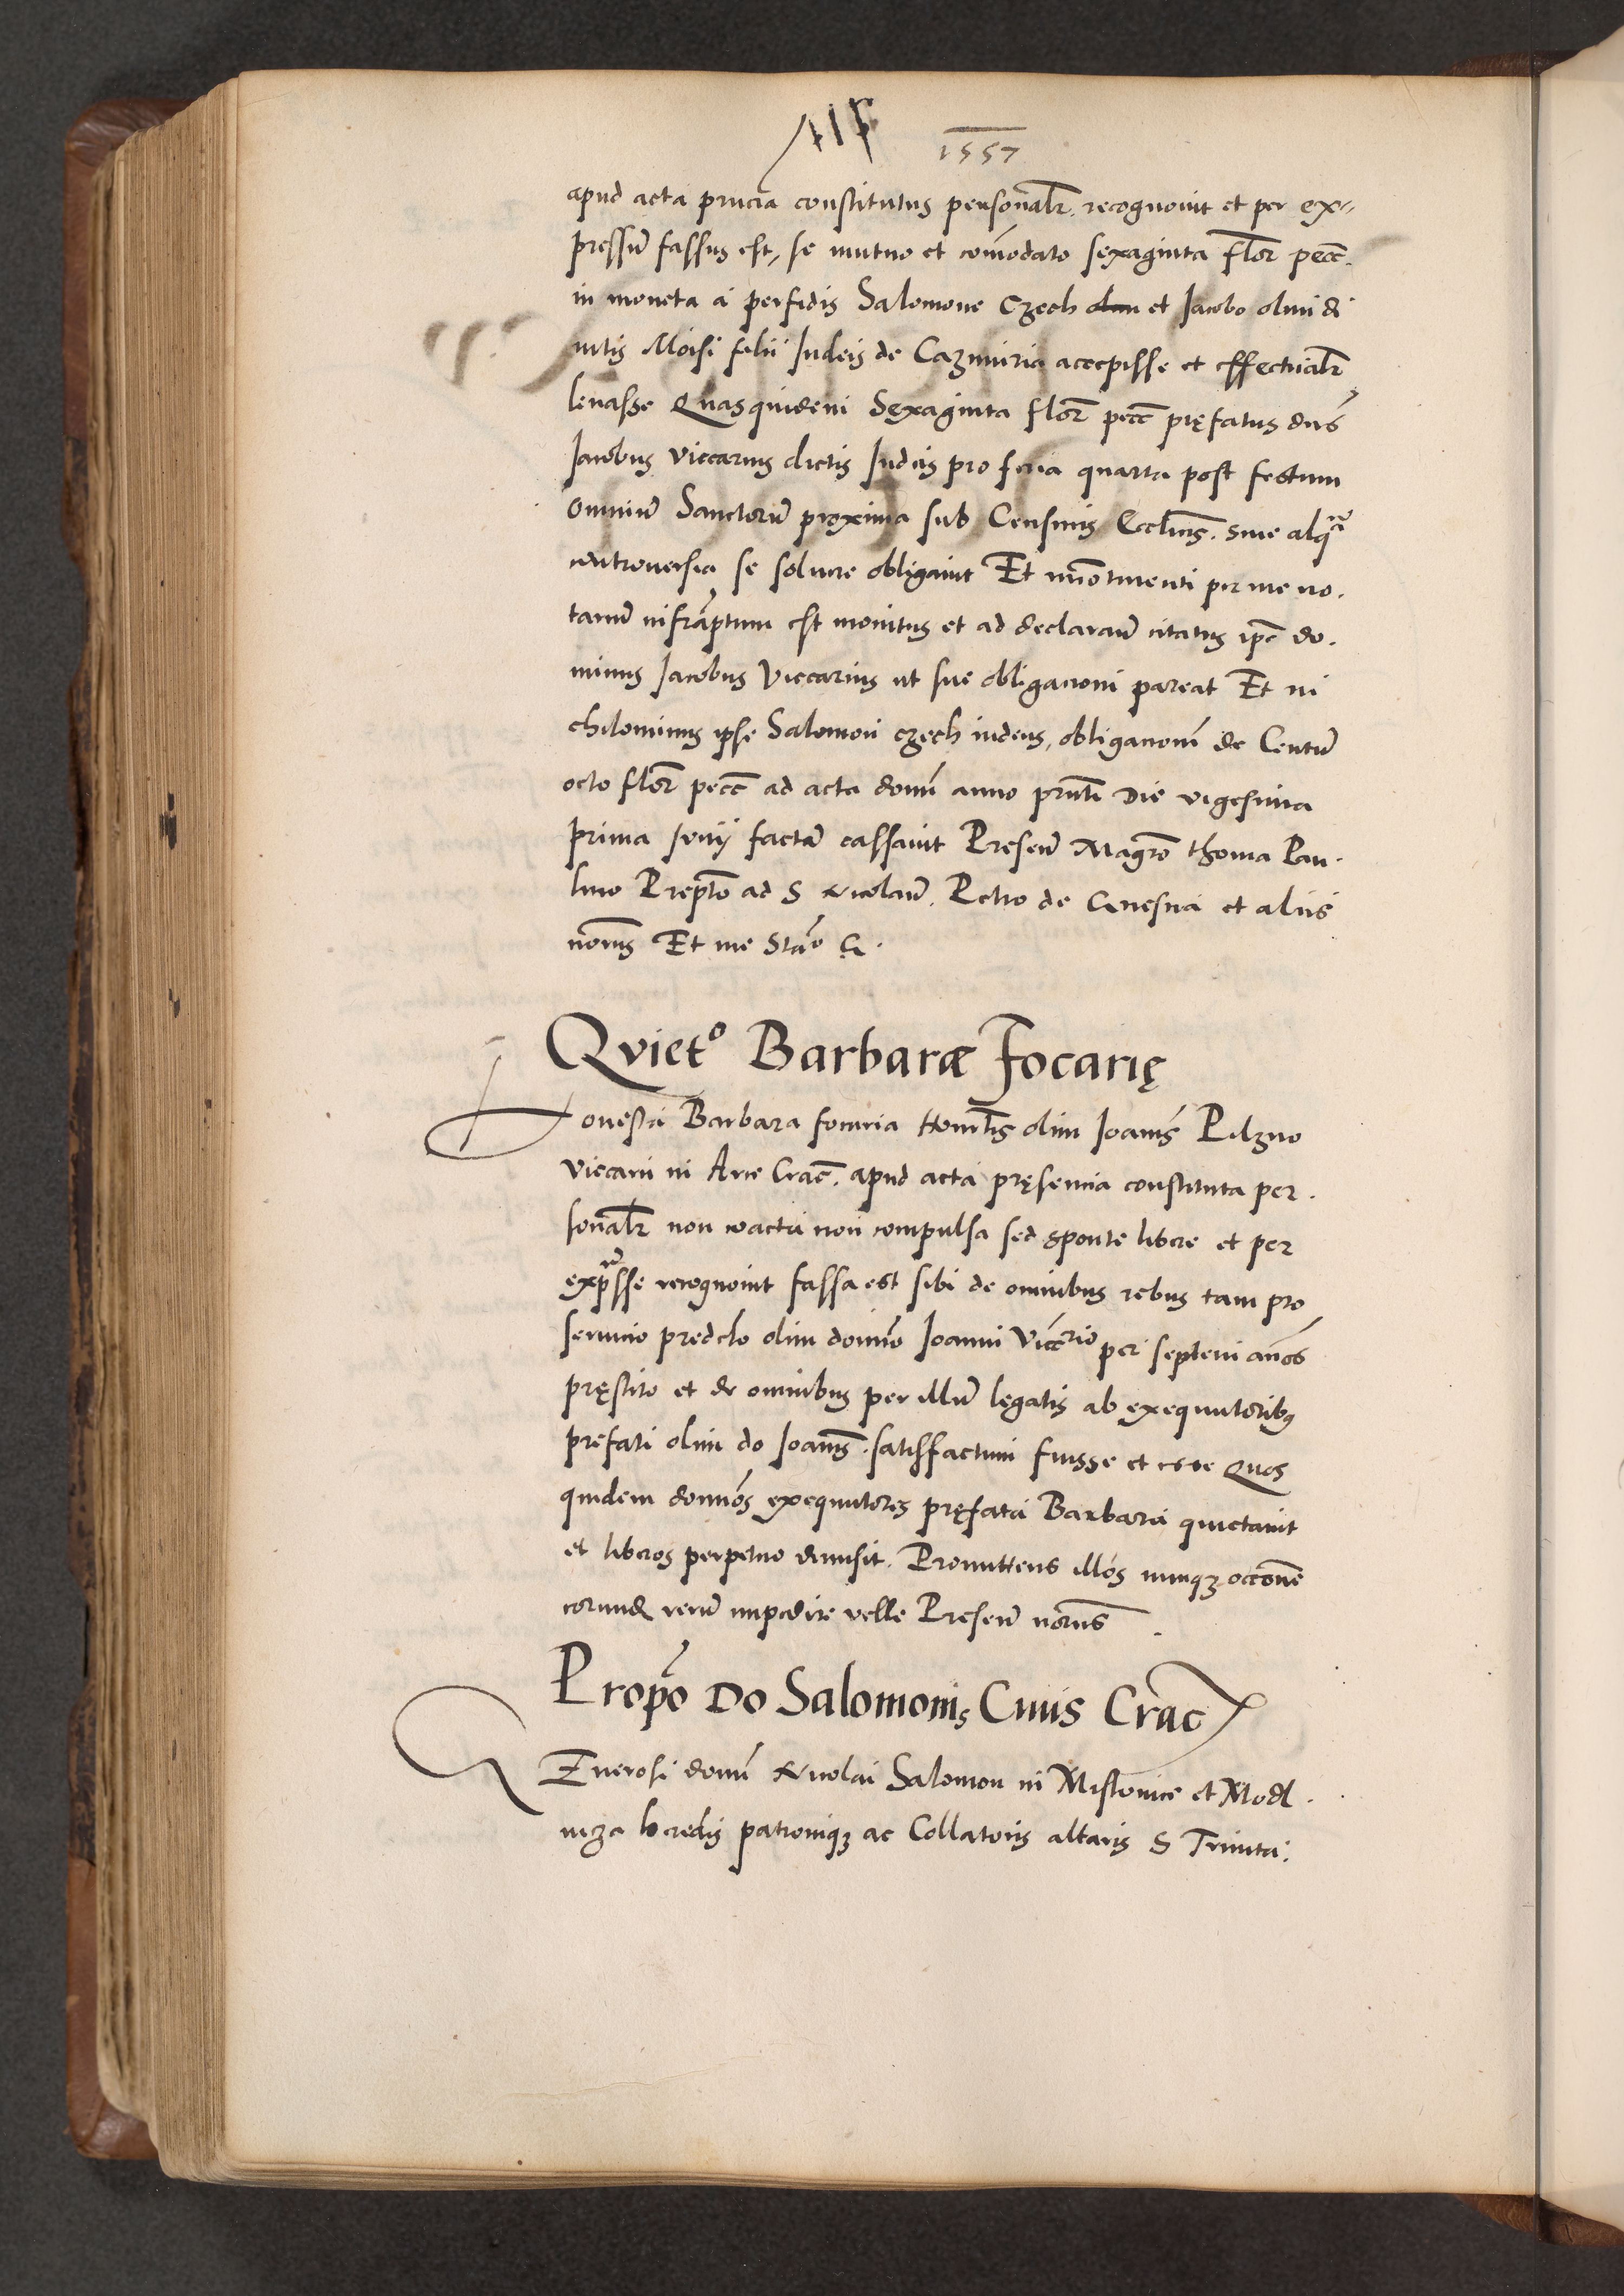 1557
apud acta prncia constitutus personalr. recognovit et per ex-
pressum fassus est, se mutuo et comodato sexaginta flor pecc.
in moneta a perfidis Salomone Czech et Jacobo olim di
vitis Moisi filii Judeis de Cazmiria accepisse et effectualr
levasse Quasquidem Sexaginta flor pecc pręfatus dns
Jacobus Viccarius dictis Judeis pro feria quarta post festum
omnium Sanctorum proxima sub Censuris Ecclicis. sine alqa
controversia se solvere obligavit Et incontinenti per me no.
tarium infrascriptum est monitus et ad declarandum citatus ipse do.
minus Jacobus Viccarius ut sue obligacioni pareat Et ni
chilominus ipse Salomon czech iudeus, obligacionem de Centum
octo flor pecc ad acta domini anno prnti Die vigesima
prima Junij factam cassavit Presen Magro thoma Pau.
lino Prepto ad S Nicolaum. Petro de Gnesna et aliis
noriis Et me Stano G.
Qviet° Barbaræ Focarię
Honesta Barbara focaria Honrlis olim Joanis Pilzno
Viccarii in Arce Crac. apud acta pręsencia constituta per.
sonalr non coacta non compulsa sed sponte libere et per
expsse recognovit fassa est sibi de omnibus rebus tam pro
servicio predcto olim domino Joanni Viccrio per septem anos
pręstito et de omnibus per illum legatis ab exequutoribus
prefati olim do Joanis. satisfactum fuisse et esse Quos
quidem dominos exequutores pręfata Barbara quietavit
et liberos perpetuo dimisit. Promittens illos nunquam occone
eorundem rerum impedire velle Presen noriis.
Propo Do Salomonis Civis Crac
GEnerosi domini Nicolai Salomon in Mistovice et Modl.
nicza heredis patronique ac Collatoris altaris S Trinita.